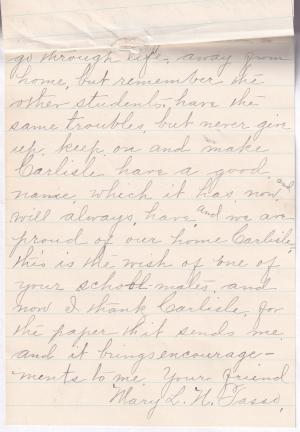 go through life, away from
home, but remember the
other students, have the
same troubles, but never give
up, keep on and make
Carlisle have a good
name, which it has now, and
will always, have, and we are
proud of our home Carlisle,
this is the wish of one of
your school mates, and
now I thank Carlisle, for
the paper thit sends me
and it brings encourage-
ments to me. Your friend
Mary L. N. Tasso,